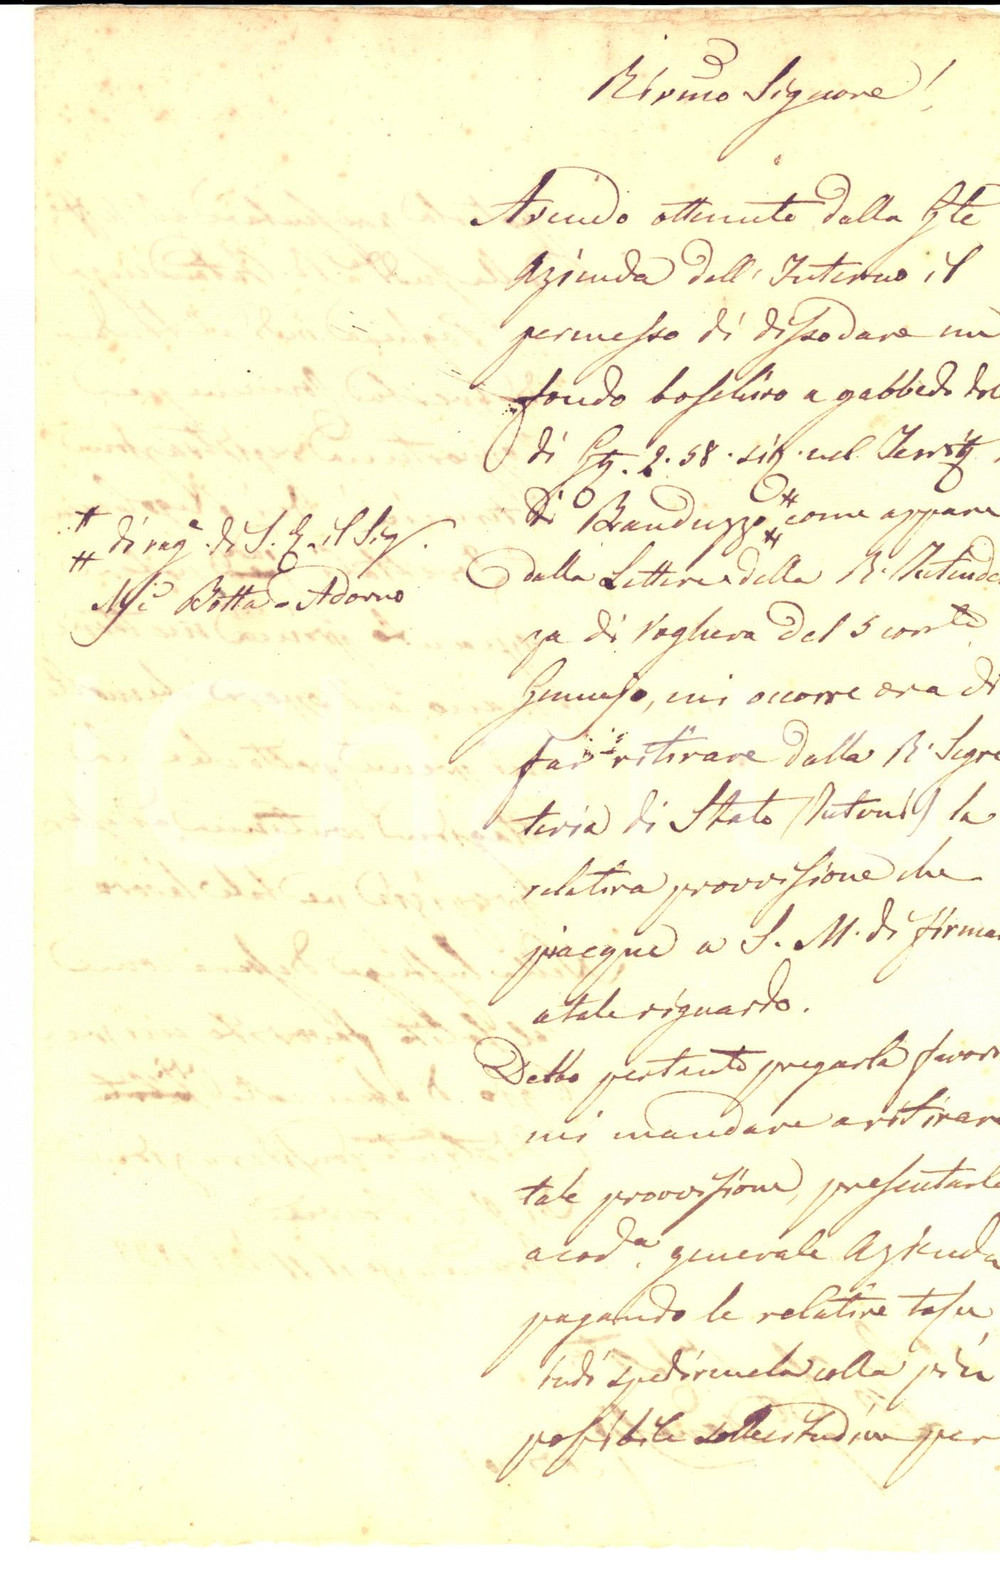 Rivmo Signore!
Avendo ottenuto dalla Gle
Azienda dell'Interno il
permesso di dissodare un
fondo boschivo a gabbedo
di 2.58. sit. nel Territ.
di Branduzzo ++ come appare
dalla Lettera della R. Intenden
za di Voghera del 5 corrte
Gennajo, mi occorre ora di
far ritirare dalla R. Segre
teria di Stato (Interni) la
relativa provvisione che
piacque a S. M. di firmar
a tale riguardo.
Debbo pertanto pregarla favorir
mi mandare a ritirare
tale provvisione, presentarla
a cod.a generale Azienda
pagando le relative tasse
indi spedirmela colla più
possibile sollecitudine per
++ di rag.e di S. E. il Sig.
Mse Botta-Adorno